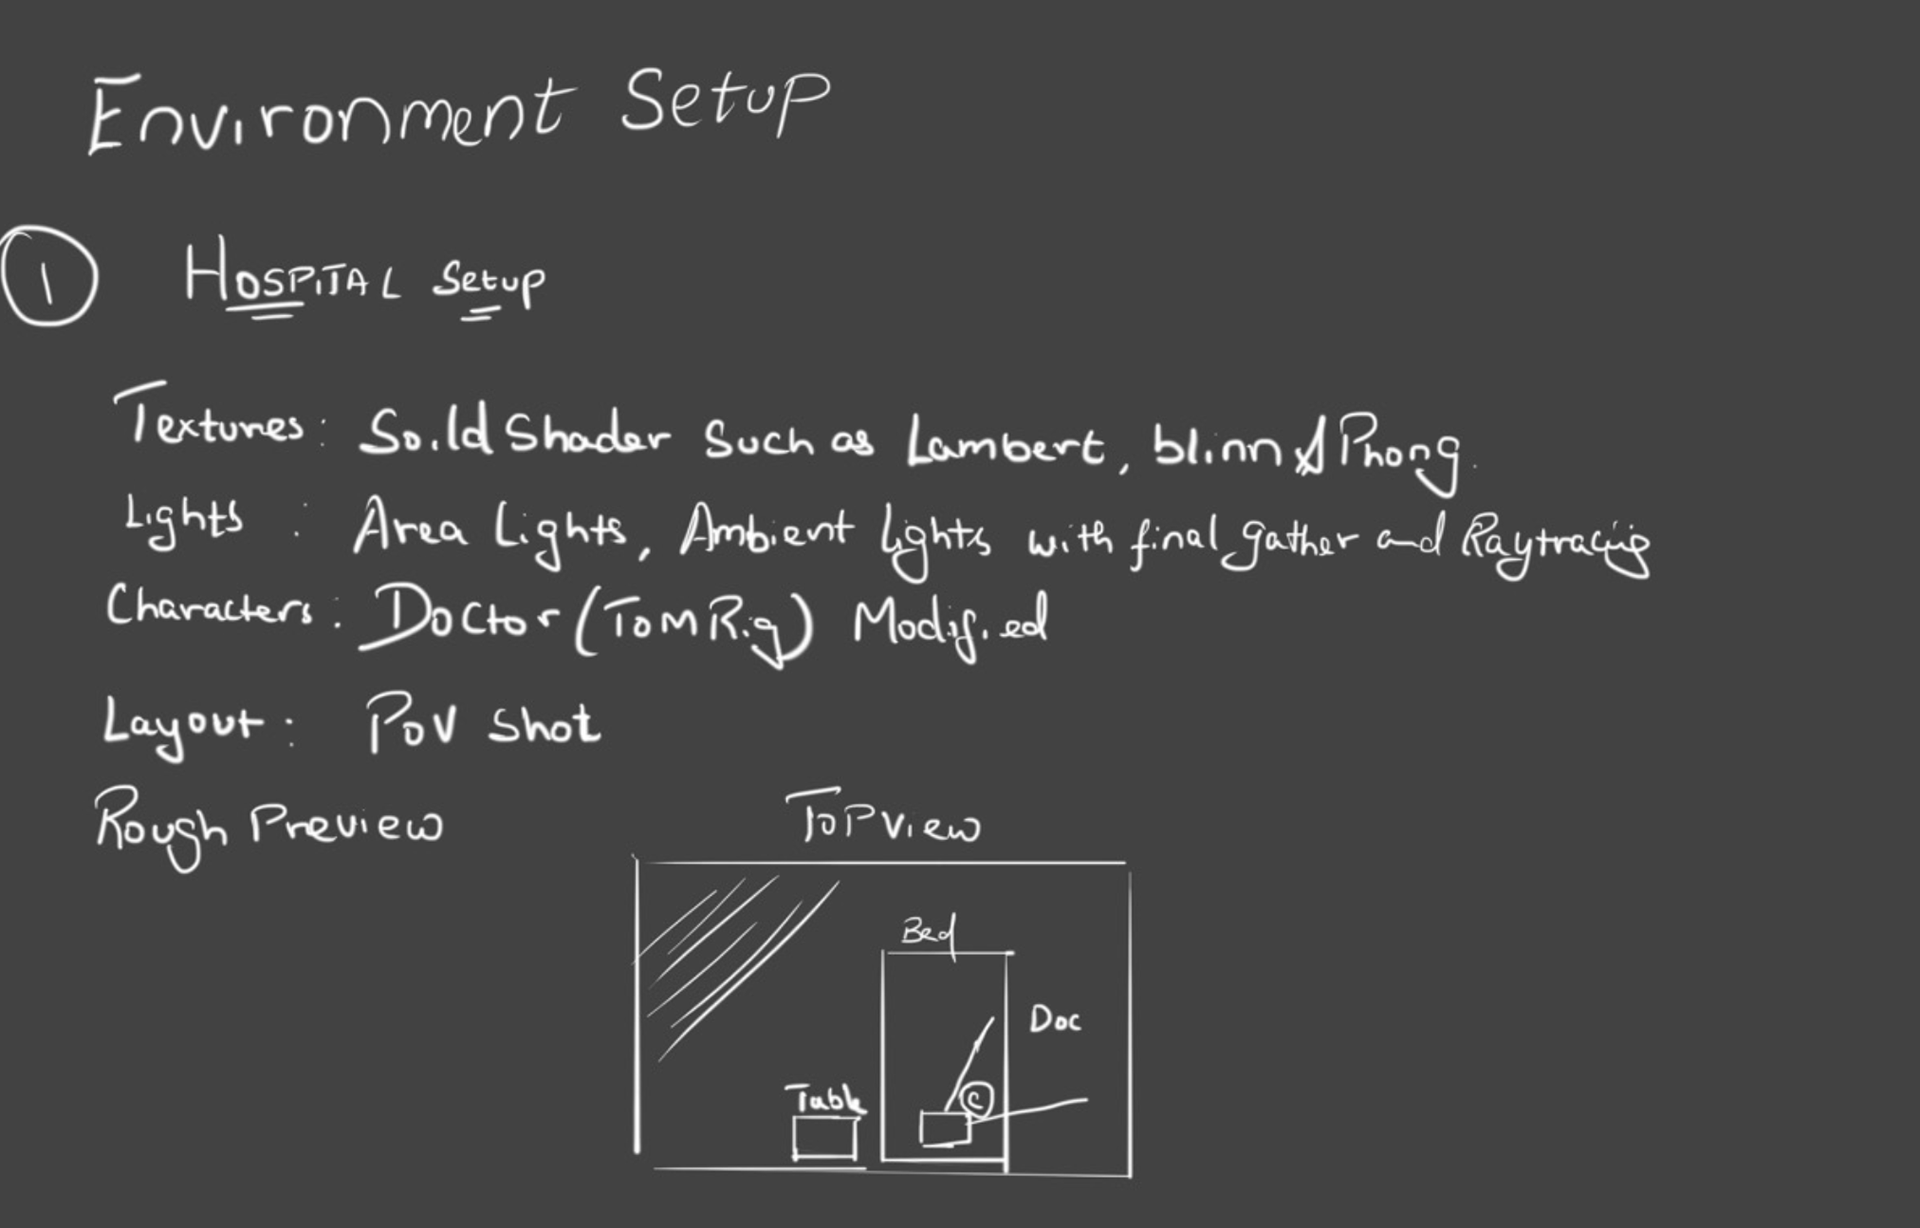 Environment Setup
1 HOSPITAL Setup
Textures: Soild Shader Such as Lambert, blinn & Phong.
Lights : Area Lights, Ambient lights with final gather and Raytracing
Characters: Doctor (TOM Rig) Modified
Layout: POV Shot
Rough Preview
TOP View
Bed
Doc
Table
C